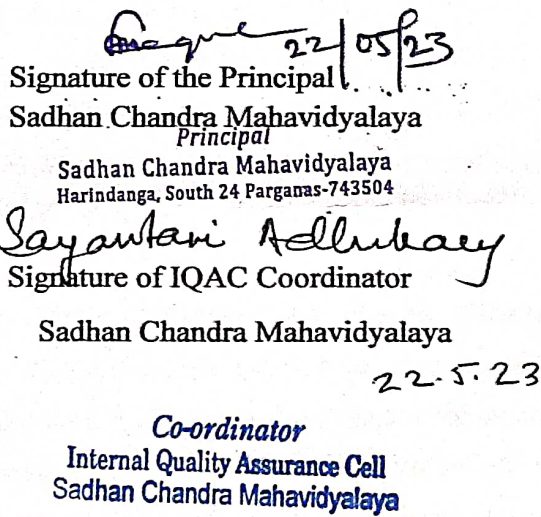 22/05/23
Signature of the Principal
Sadhan Chandra Mahavidyalaya
Principal
Sadhan Chandra Mahavidyalaya
Harindanga, South 24 Parganas-743504
Sayantani Adhikary
Signature of IQAC Coordinator
Sadhan Chandra Mahavidyalaya
22.5.23
Co-ordinator
Internal Quality Assurance Cell
Sadhan Chandra Mahavidyalaya